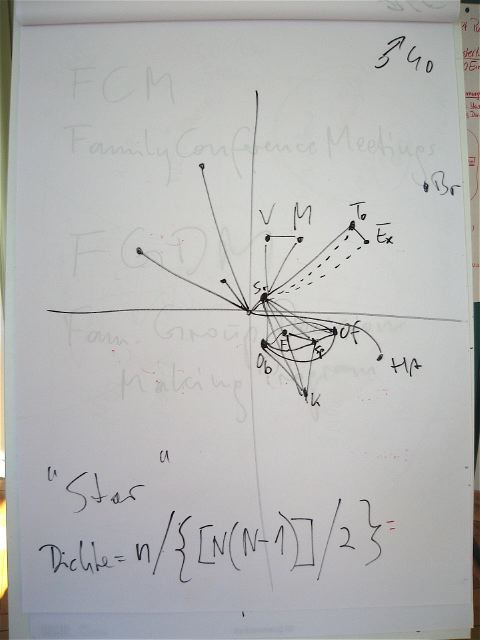 ♂ 40
FCM
Family Conference Meetings
Br
V M To
Ex
FGDM
S
Fam. Group
Of
Ob
F
HA
Making Program
K
"Star"
Dichte = n/{[N(N-1)]/2} =